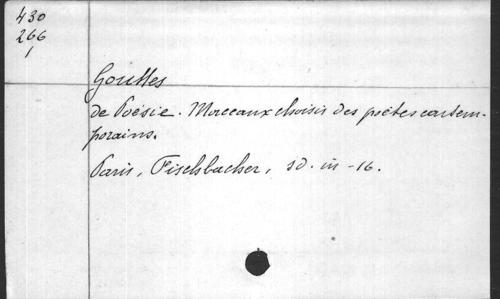 430
266
1
Gouttes
de Poésie. Morceaux choisis des poètes contem-
porains.
Paris, Fischbacher, sd. in-16.